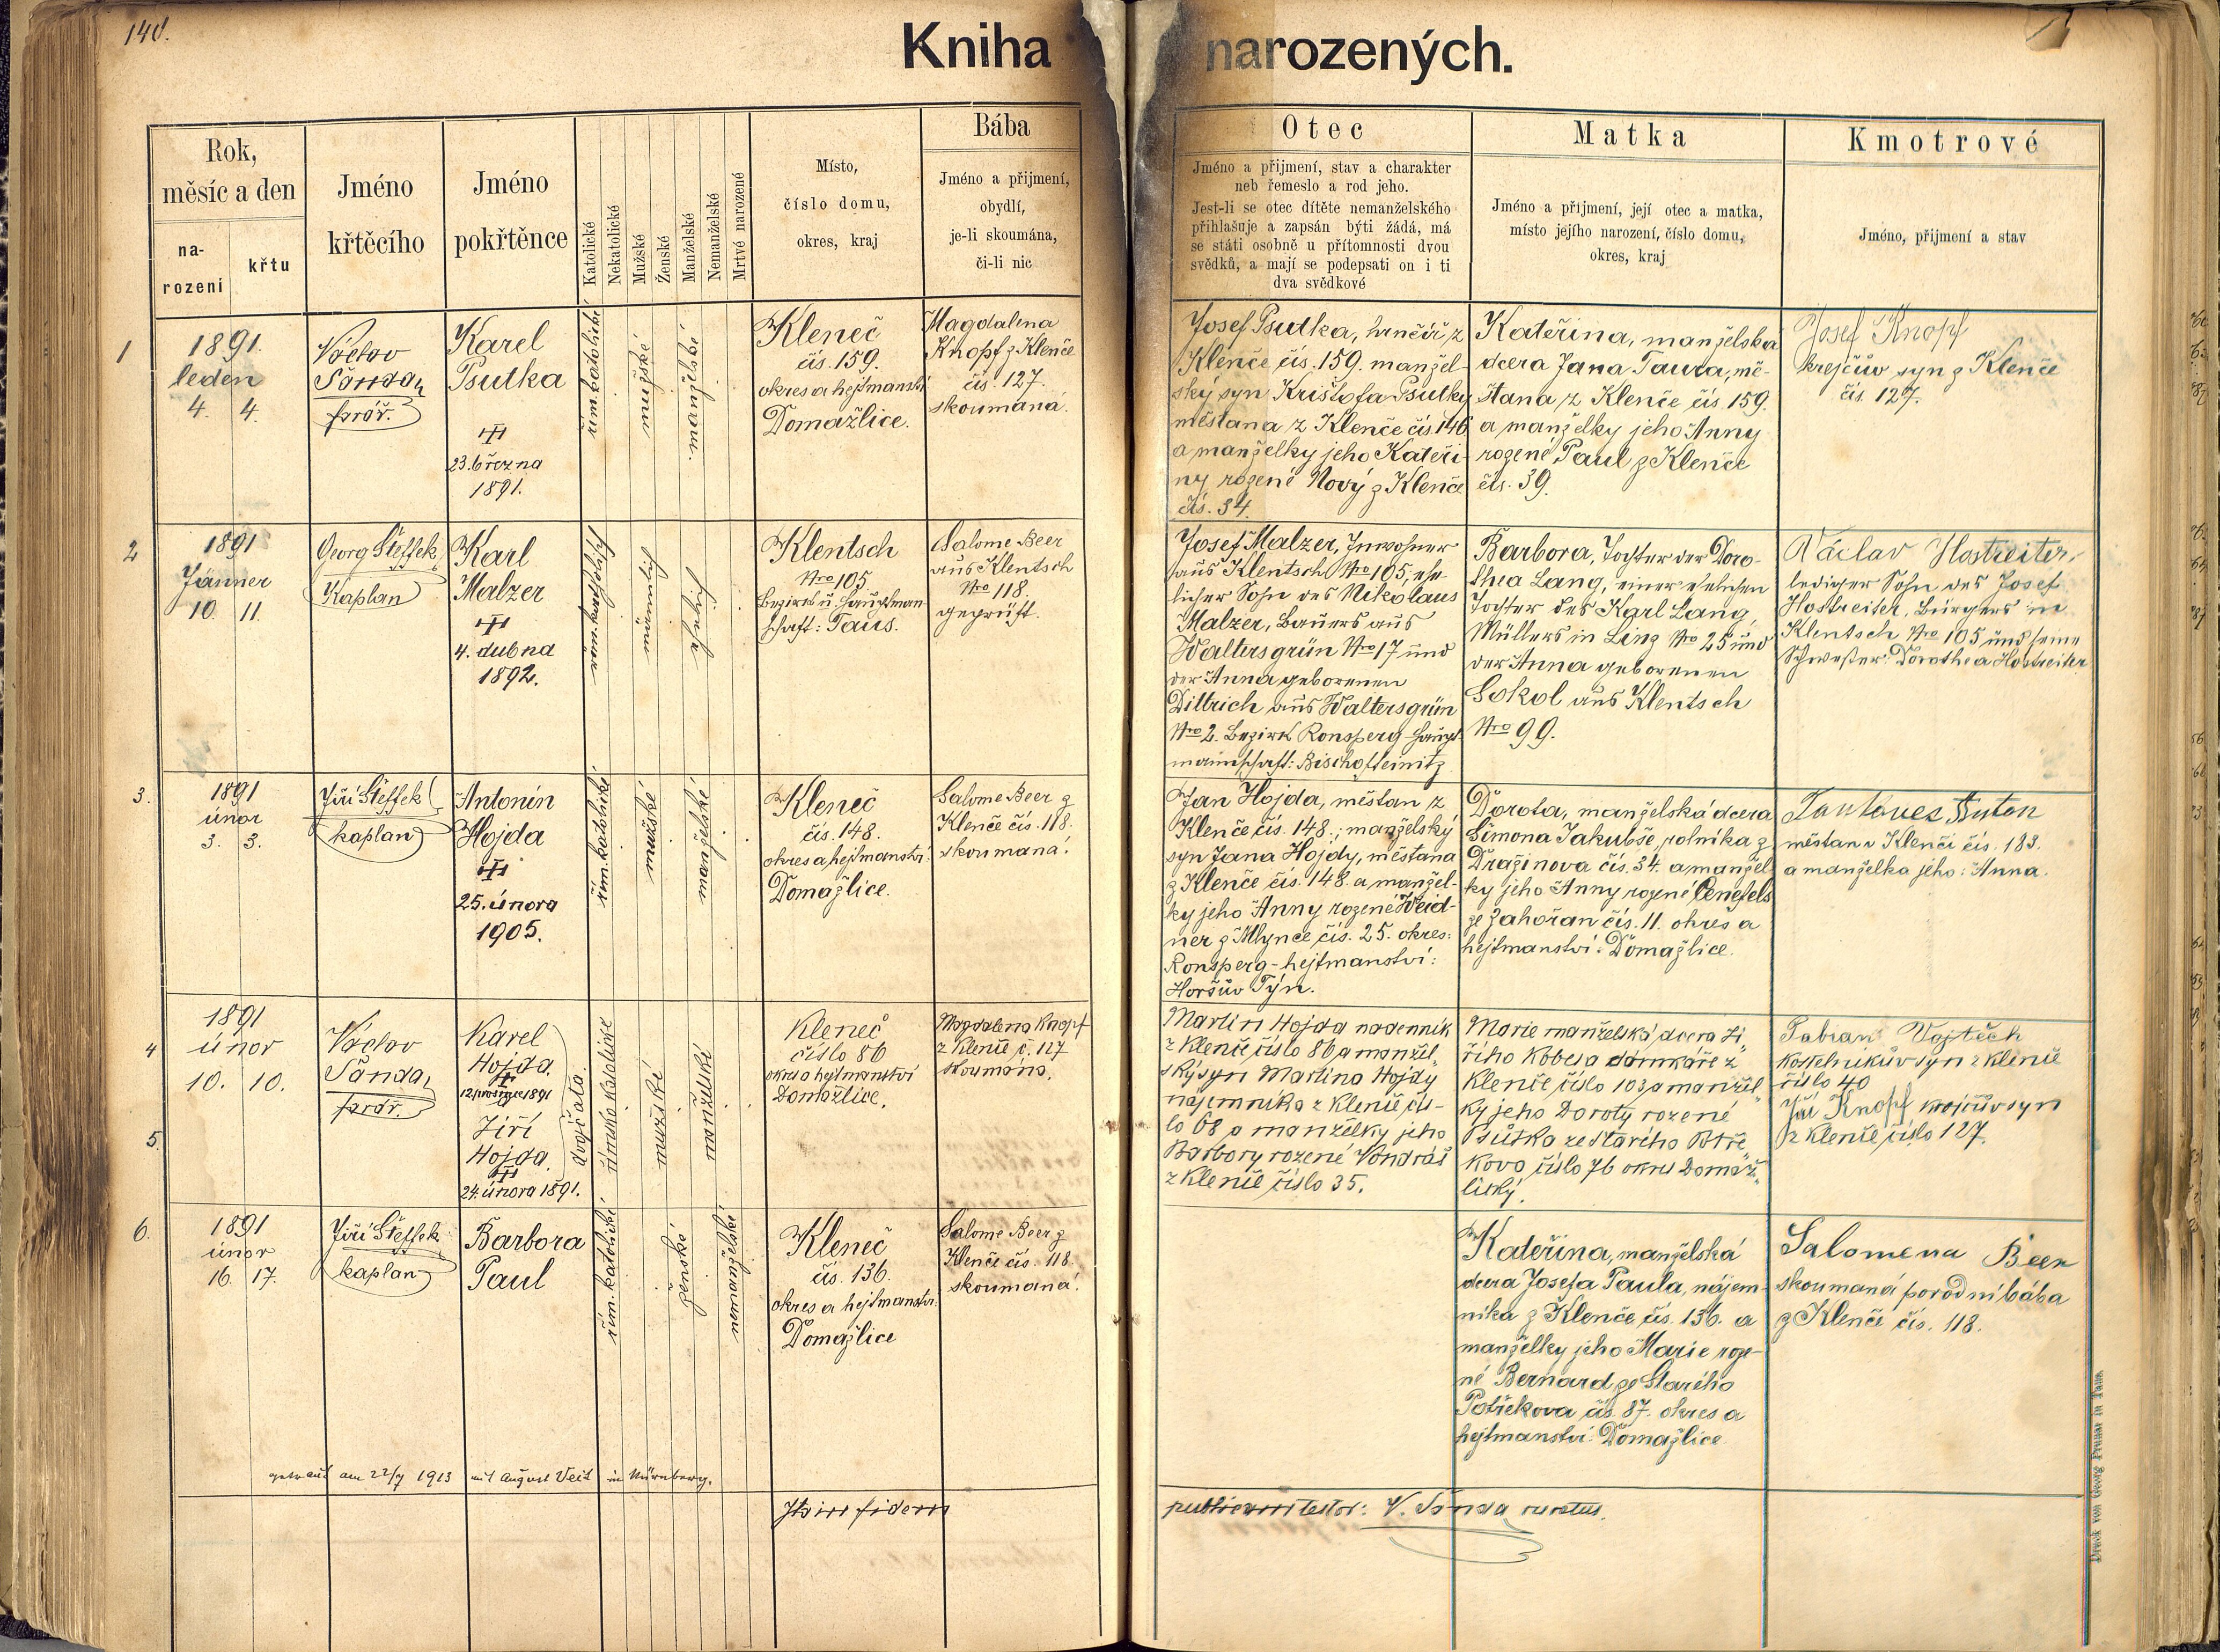 140.
Kniha narozených.
Rok,
měsíc a den
na-
rození
křtu
Jméno
křtěcího
Jméno
pokřtěnce
Katolické
Nekatolické
Mužské
Ženské
Manželské
Nemanželské
Mrtvě narozené
Místo,
číslo domu,
okres, kraj
Bába
Jméno a přijmení,
obydlí,
je-li skoumána,
či-li nic
Otec
Jméno a přijmení, stav a charakter
neb řemeslo a rod jeho.
Jest-li se otec dítěte nemanželského
přihlašuje a zapsán býti žádá, má
se státi osobně u přítomnosti dvou
svědků, a mají se podepsati on i ti
dva svědkové
Matka
Jméno a přijmení, její otec a matka,
místo jejího narození, číslo domu,
okres, kraj
Kmotrové
Jméno, přijmení a stav
1
1891.
leden
4. 4.
Václav
Šanda,
farář.
Karel
Psutka
23. března
1891.
řím. katolické
mužské
manželské
Kleneč
čís. 159.
okres a hejtmanství
Domažlice.
Magdalena
Knopf z Klenče
čís. 127.
skoumaná.
Josef Psutka, hrnčíř z
Klenče čís. 159. manžel-
ský syn Krištofa Psutky
měšťana z Klenče čís. 146
a manželky jeho Kateři-
ny rozené Nový z Klenče
čís. 34.
Kateřina, manželská
dcera Jana Taura, mě-
šťana z Klenče čís. 159.
a manželky jeho Anny
rozené Paul z Klenče
čís. 39.
Josef Knopf
krejčův syn z Klenče
čís. 127.
2
1891
Jänner
10. 11.
Georg Šteffek,
Kaplan
Karl
Malzer
4. dubna
1892.
röm. katholisch
männlich
ehelich
Klentsch
Nro 105
Bezirk u. Hauptman
schaft: Taus.
Salome Beer
aus Klentsch
Nro 118.
geprüft.
Josef Malzer, Inwohner
aus Klentsch Nro 105, ehe-
licher Sohn des Nikolaus
Malzer, Bauers aus
Waltersgrün Nro 17 und
der Anna geborenen
Dittrich aus Waltersgrün
Nro 2. Bezirk Ronsperg Haupt-
mannschaft: Bischofteinitz
Barbora, Tochter der Doro-
thea Lang, einer ehelichen
Tochter des Karl Lang,
Müllers in Linz Nro 25 und
der Anna geborenen
Sokol aus Klentsch
Nro 99.
Václav Hostreiter,
lediger Sohn des Josef
Hostreiter, Bürgers in
Klentsch Nro 105 und seine
Schwester: Dorothea Hostreiter
3.
1891
únor
3. 3.
Jiří Šteffek
kaplan
Antonín
Hojda
25. února
1905.
řím. katolické
mužské
manželské
Kleneč
čís. 148.
okres a hejtmanství:
Domažlice.
Salome Beer z
Klenče čís. 118.
skoumaná.
Jan Hojda, měšťan z
Klenče čís. 148.; manželský
syn Jana Hojdy, měšťana
z Klenče čís. 148. a manžel-
ky jeho Anny rozené Weid-
ner z Mlýnce čís. 25. okres:
Ronsperg - hejtmanství:
Horšův Týn.
Dorota, manželská dcera
Šimona Jakubše, rolníka z
Dražinova čís. 34. a manžel
ky jeho Anny rozené
ze Zahořan čís. 11. okres a
hejtmanství: Domažlice.
Anton
měšťan v Klenči čís. 183.
a manželka jeho: Anna.
4
5.
1891
únor
10. 10.
Václav
Šanda,
farář.
Karel
Hojda.
1891
Jiří
Hojda.
24. února 1891.
dvojčata.
římsko katolické
mužské
manželské
Kleneč
číslo 86
okres a hejtmanství
Domažlice.
Magdalena Knopf
z Klenče č. 127
skoumána.
Martin Hojda nádenník
z Klenče číslo 86 a manžel„
ský syn Martina Hojdy
nájemníka z Klenče čís-
lo 68 a manželky jeho
Barbory rozené Vondráš
z Klenče číslo 35.
Marie manželská dcera Ji„
řího Kobesa domkáře z
Klenče číslo 103 a manžel„
ky jeho Doroty rozené
Psutka ze Starého Ptře„
kova číslo 76 okres Domaž„
lický.
Fabian Vojtěch
kostelníkův syn z Klenče
číslo 40
Jiří Knopf krejčův syn
z Klenče číslo 127.
6.
1891
únor
16. 17.
Jiří Šteffek
kaplan
Barbora
Paul
řím. katolické
ženské
nemanželské
Kleneč
čís. 136.
okres a hejtmanství:
Domažlice
Salome Beer z
Klenče čís. 118.
skoumaná.
Kateřina, manželská
dcera Josefa Paula, nájem-
níka z Klenče čís. 136. a
manželky jeho Marie roze-
né Bernard ze Starého
Potřekova čís. 87. okres a
hejtmanství: Domažlice.
Salomena Beer
skoumaná porodní bába
z Klenče čís. 118.
getraut am 22/7 1913 mit August Veit in Nürnberg.
Ita in fidem publicam testor: V. Šanda curatus.
Druck von Georg Prunar in Taus.